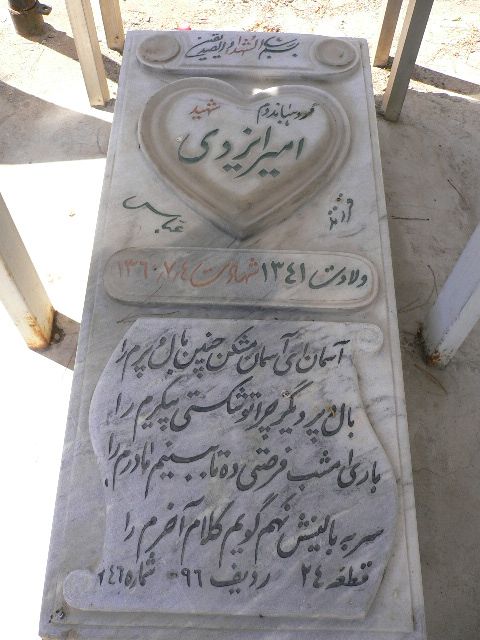 بسم رب الشهداء و الصدیقین
شهید
امیر ایزدی
فرزند عباس
ولادت ۱۳۴۱ شهادت ۱۳۶۰/۷/۴
آسمان ای آسمان مشکن چنین بال و پرم را
بال و پر دیگر چرا تو شکستی پیکرم را
باری امشب فرصتی ده تا ببینم مادرم را
سر به بالینش نهم گویم کلام آخرم را
قطعه ۲۴ ردیف ۹۶ شماره ۲۴۶